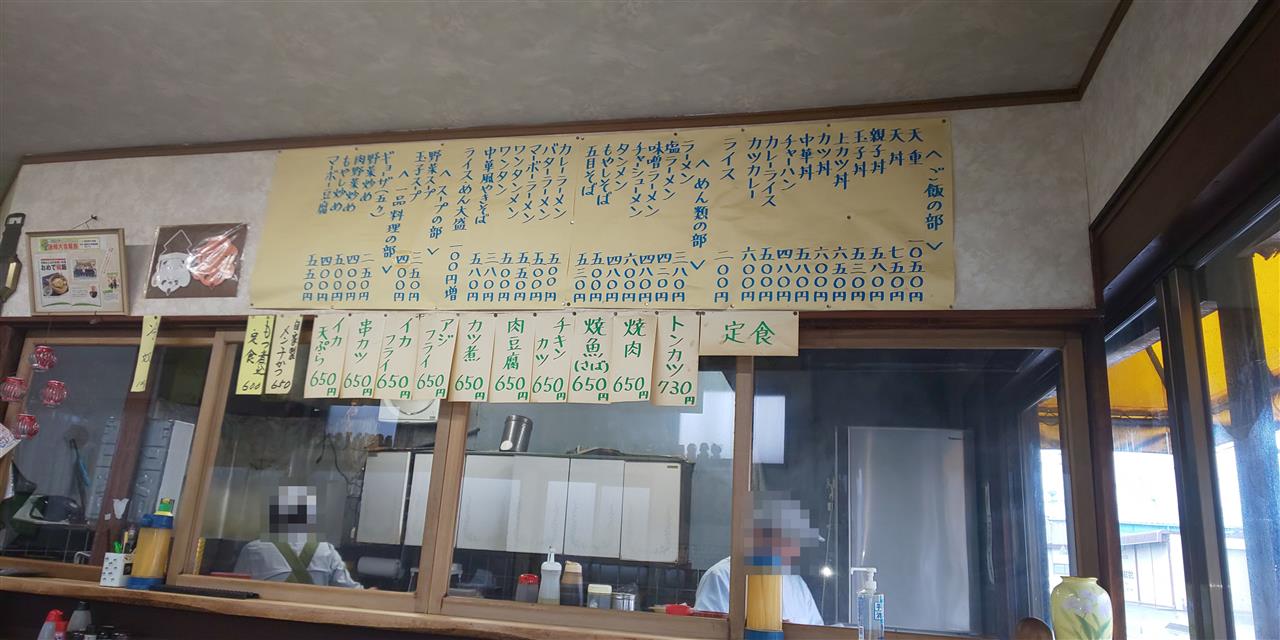 ＜ご飯の部＞
天重 一〇五〇円
天丼 七五〇円
親子丼 五八〇円
玉子丼 五三〇円
上カツ丼 六五〇円
カツ丼 六〇〇円
中華丼 五三〇円
チャーハン 四八〇円
カレーライス 五〇〇円
カツカレー 六〇〇円
ライス 二〇〇円
＜めん類の部＞
ラーメン 三八〇円
塩ラーメン 四二〇円
味噌ラーメン 四八〇円
チャーシューメン 六〇〇円
タンメン 四八〇円
もやしそば 五〇〇円
五目そば 五三〇円
カレーラーメン 五〇〇円
バターラーメン 五〇〇円
マーボーラーメン 五五〇円
ワンタンメン 五〇〇円
ワンタン 三八〇円
中華風やきそば 五〇〇円
ライスめん大盛 一〇〇円増
＜スープの部＞
野菜スープ 三五〇円
玉子スープ 四〇〇円
＜一品料理の部＞
ギョーザ(五ヶ) 二五〇円
野菜炒め 四〇〇円
肉野菜炒め 五〇〇円
もやし炒め 四〇〇円
マーボー豆腐 五五〇円
定食
トンカツ 730円
焼肉 650円
焼魚(さば) 650円
チキンカツ 650円
肉豆腐 650円
カツ煮 650円
アジフライ 650円
イカフライ 650円
串カツ 650円
イカ天ぷら 650円
メンチかつ 650
もつ煮込定食 600